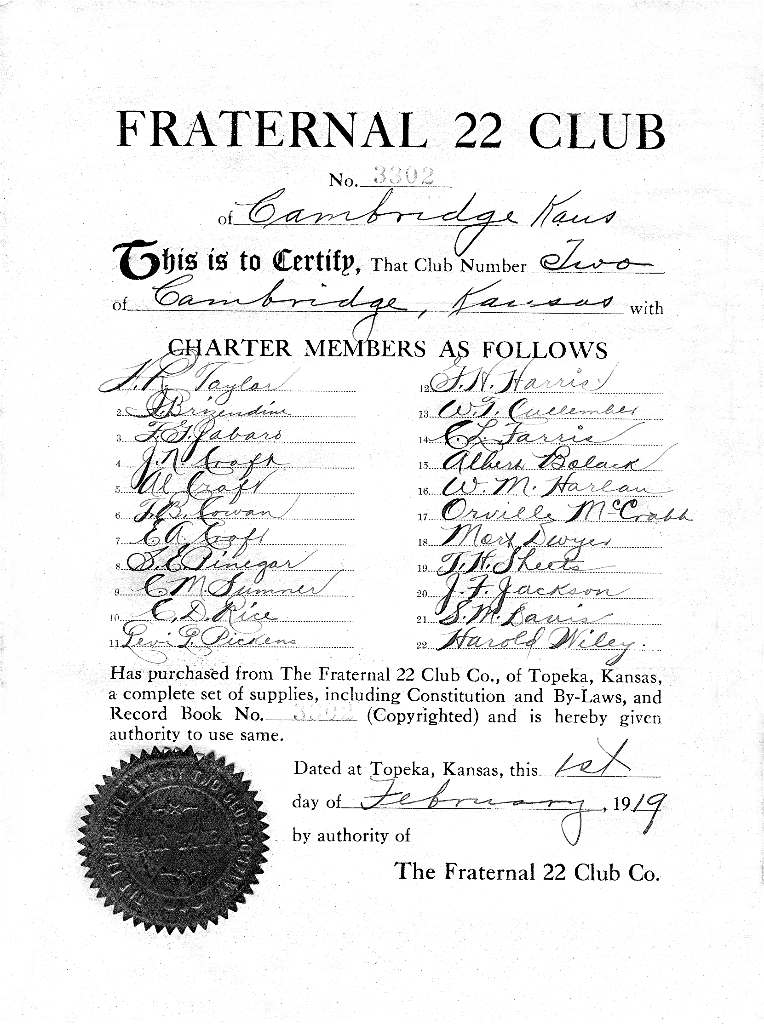 FRATERNAL 22 CLUB
No. 3302
of Cambridge Kans
This is to Certify, That Club Number Two
of Cambridge, Kansas with
CHARTER MEMBERS AS FOLLOWS
Taylor
2. Brizendine
3.
4. J. R. Croft
5. Al Croft
6. Cowan
7. E A. Croft
8. S. E. Pinegar
9. C M. Sumner
10. C. D. Rice
11. Levi P. Pickens
12. F. H. Harris
13. W. T. Cullember
14. C. L. Farris
15. Albert Bolack
16. W. M. Harlan
17. Orville McCrabb
18. Dwyer
19. T. H. Sheets
20. J. F. Jackson
21. S. M. Davis
22. Harold Wiley.
Has purchased from The Fraternal 22 Club Co., of Topeka, Kansas,
a complete set of supplies, including Constitution and By-Laws, and
Record Book No. 3302 (Copyrighted) and is hereby given
authority to use same.
Dated at Topeka, Kansas, this 1st
day of February, 1919
by authority of
The Fraternal 22 Club Co.